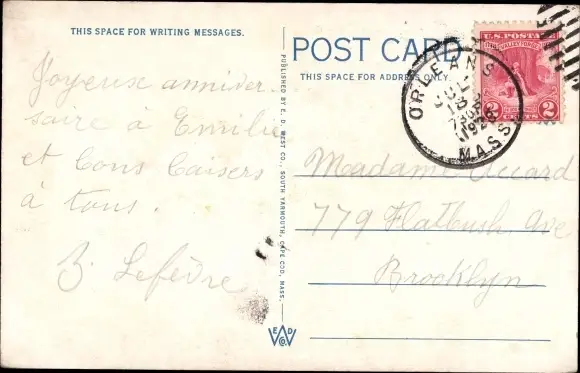 THIS SPACE FOR WRITING MESSAGES.
Joyeuse anniver-
saire à Emilie
et bons baisers
à tous.
Z. Lefèvre
PUBLISHED BY E. D. WEST CO., SOUTH YARMOUTH, CAPE COD, MASS.
E D
W
Co.
POST CARD
THIS SPACE FOR ADDRESS ONLY.
ORLEANS
JUL
1928
MASS
U.S. POSTAGE
2 CENTS 2
Madame Accard
779 Flatbush Ave
Brooklyn